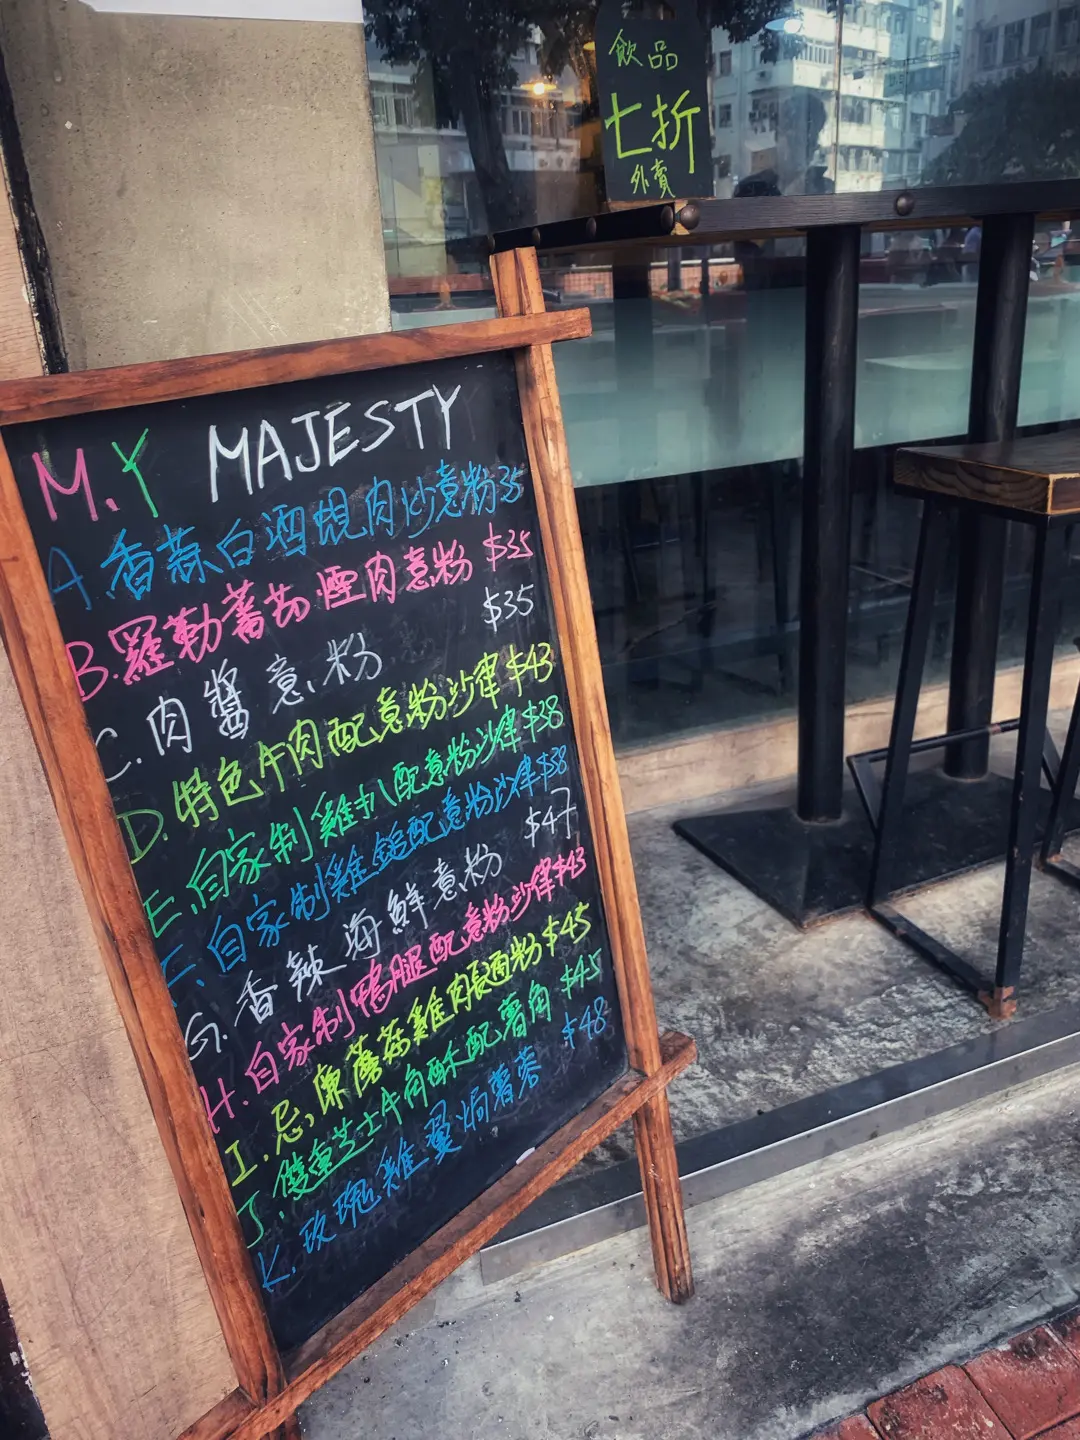 飲品
七折
外賣
M.Y MAJESTY
A.香蒜白酒蜆肉炒意粉35
B.羅勒蕃茄煙肉意粉 $35
C.肉醬意粉 $35
D.特色牛肉配意粉沙律$43
E.自家制雞扒配意粉沙律$38
F.自家制雞鎚配意粉沙律$38
G.香辣海鮮意粉 $47
H.自家制鴨腿配意粉沙律$43
I.忌廉蘑菇雞肉長通粉$45
J.雙重芝士牛肉酥配薯角 $45
K.玫瑰雞翼焗薯蓉 $48